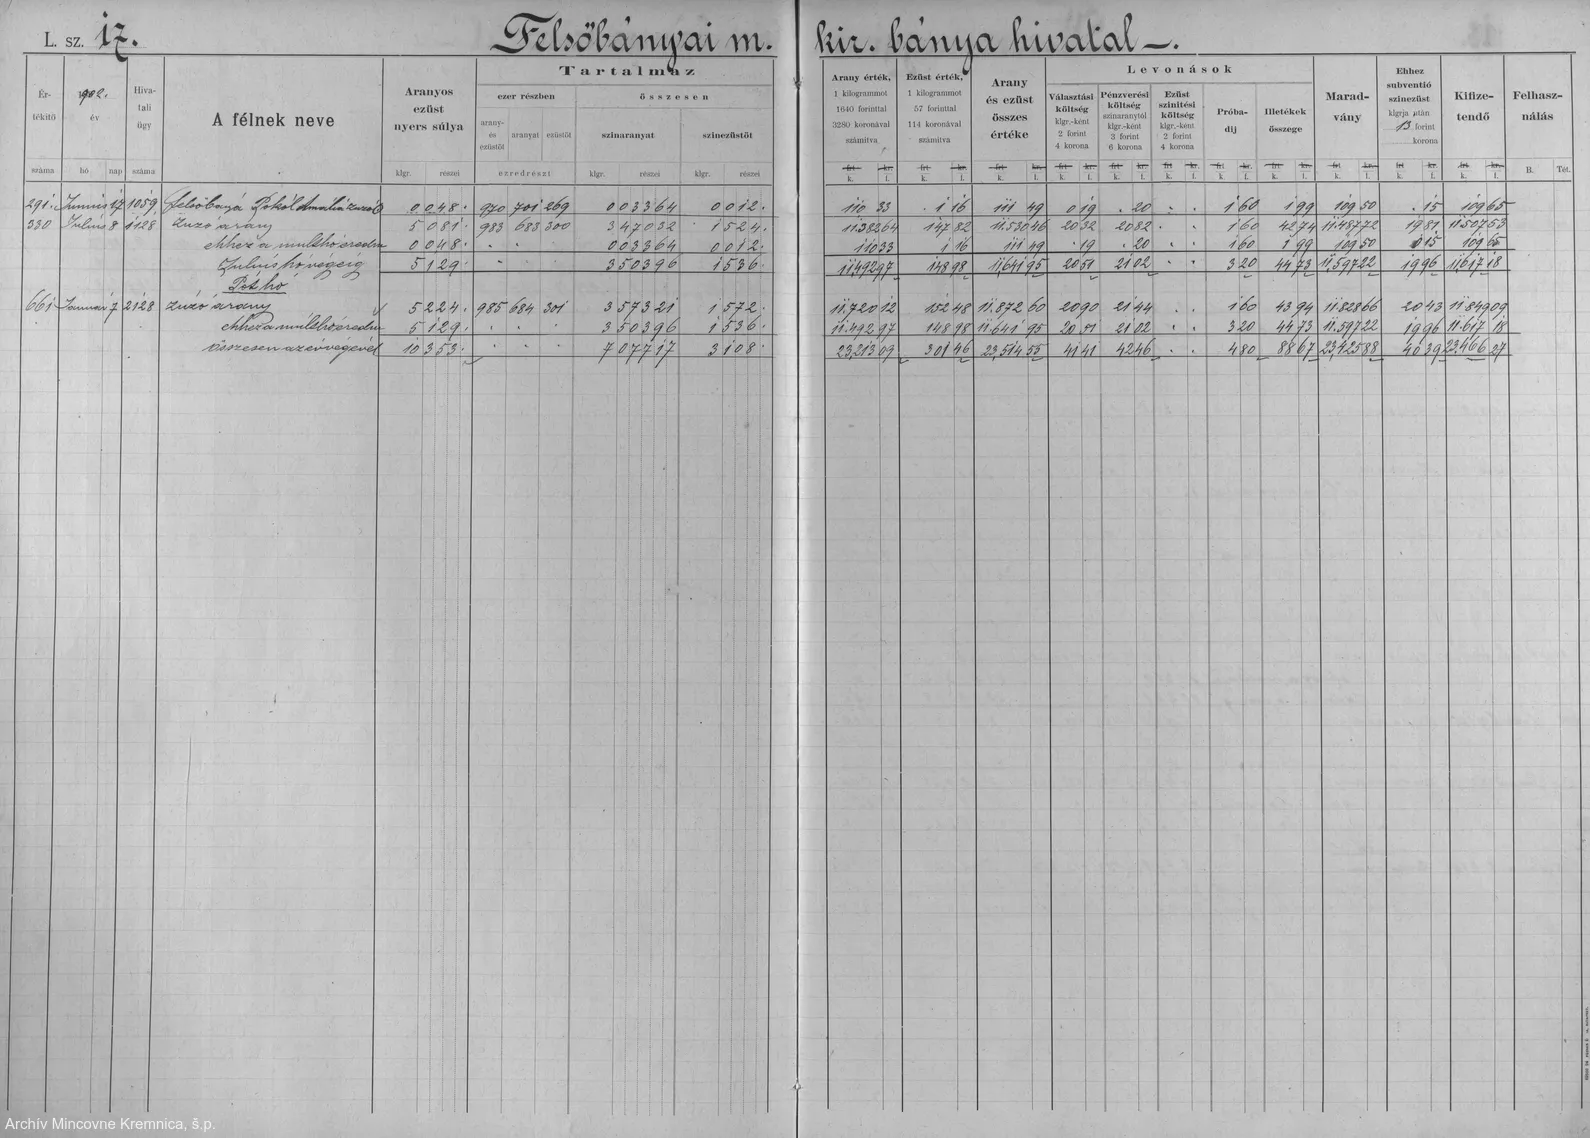 L. sz. 17. Felsőbányai m. kir. bánya hivatal
Értékítő száma
902. év
hó nap
Hivatali ügy száma
A félnek neve
Aranyos ezüst nyers súlya
klgr. részei
Tartalmaz
ezer részben
arany- és ezüstöt aranyat ezüstöt
ezredrészt
összesen
szinaranyat szinezüstöt
klgr. részei klgr. részei
Arany érték, 1 kilogrammot 1640 forinttal 3280 koronával számitva
Ezüst érték, 1 kilogrammot 57 forinttal 114 koronával számitva
Arany és ezüst összes értéke
Levonások
Választási költség klgr.-ként 2 forint 4 korona
Pénzverési költség szinaranytól klgr.-ként 3 forint 6 korona
Ezüst szinitési költség klgr.-ként 2 forint 4 korona
Próbadij
Illetékek összege
Maradvány
Ehhez subventió szinezüst klgrja után 13 forint korona
Kifizetendő
Felhasználás
frt kr. k. f. B. Tét.
291. Junius 17 1059 Felsőbánya 0 048. 970 701 269 0 03364 0 012. 110 33 1 16 111 49 0 19 . 20 . . 1 60 1 99 109 50 . 15 109 65
330 Julius 8 1128 Zuzó arany 5 081. 983 683 300 3 47032 1 524. 11.382 64 147 82 11.530 46 20 32 20 82 . . 1 60 42 74 11.487 72 19 81 11.507 53
ehhez a mult hó eredm 0 048. 0 03364 0 012. 110 33 1 16 111 49 . 19 . 20 . . 1 60 1 99 109 50 0 15 109 65
Julius hó végéig 5 129. 3 50396 1 536. 11.492 97 148 98 11.641 95 20 51 21 02 . . 3 20 44 73 11.597 22 19 96 11.617 18
Pót hó
661 Január 7 2128 Zuzó arany 5 224. 985 684 301 3 57321 1 572. 11.720 12 152 48 11.872 60 20 90 21 44 . . 1 60 43 94 11.828 66 20 43 11.849 09
ehhez a mult hó eredm 5 129. 3 50396 1 536. 11.492 97 148 98 11.641 95 20 51 21 02 . . 3 20 44 73 11.597 22 19 96 11.617 18
összesen az év végével 10 353. 7 07717 3 108. 23.213 09 301 46 23.514 55 41 41 42 46 . . 4 80 88 67 23.425 88 40 39 23.466 27
Archív Mincovne Kremnica, š.p.